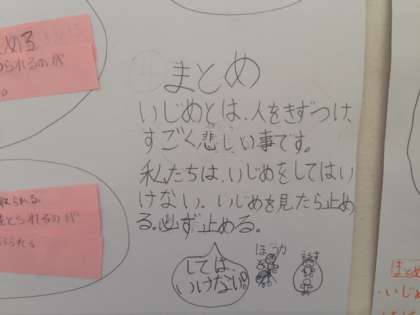 める
られるのが
。
まとめ
いじめとは、人をきずつけ、
すごく悲しい事です。
私たちは、いじめをしてはい
けない。いじめを見たら止め
る。必ず止める。
しては、
いけない!
ぼう力
取られる
とられるのが
られる
まとめ
いじめ